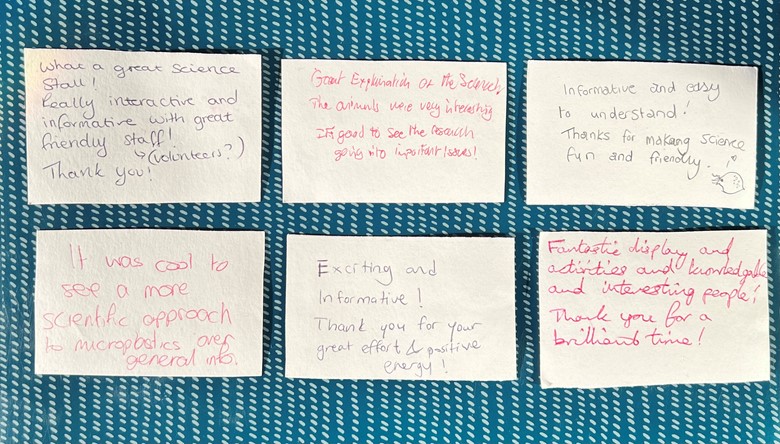 What a great science
Stall!
Really interactive and
informative with great
friendly staff!
(volunteers?)
Thank you!
Great Explination of the Science,
The animals were very interesting
It's good to see the research
going into important Issues!
Informative and easy
to understand!
Thanks for making science
fun and friendly.
It was cool to
see a more
scientific approach
to microplastics over
general info.
Exciting and
Informative!
Thank you for your
great effort & positive
energy!
Fantastic display and
activities and knowledgable
and interesting people!
Thank you for a
brilliant time!